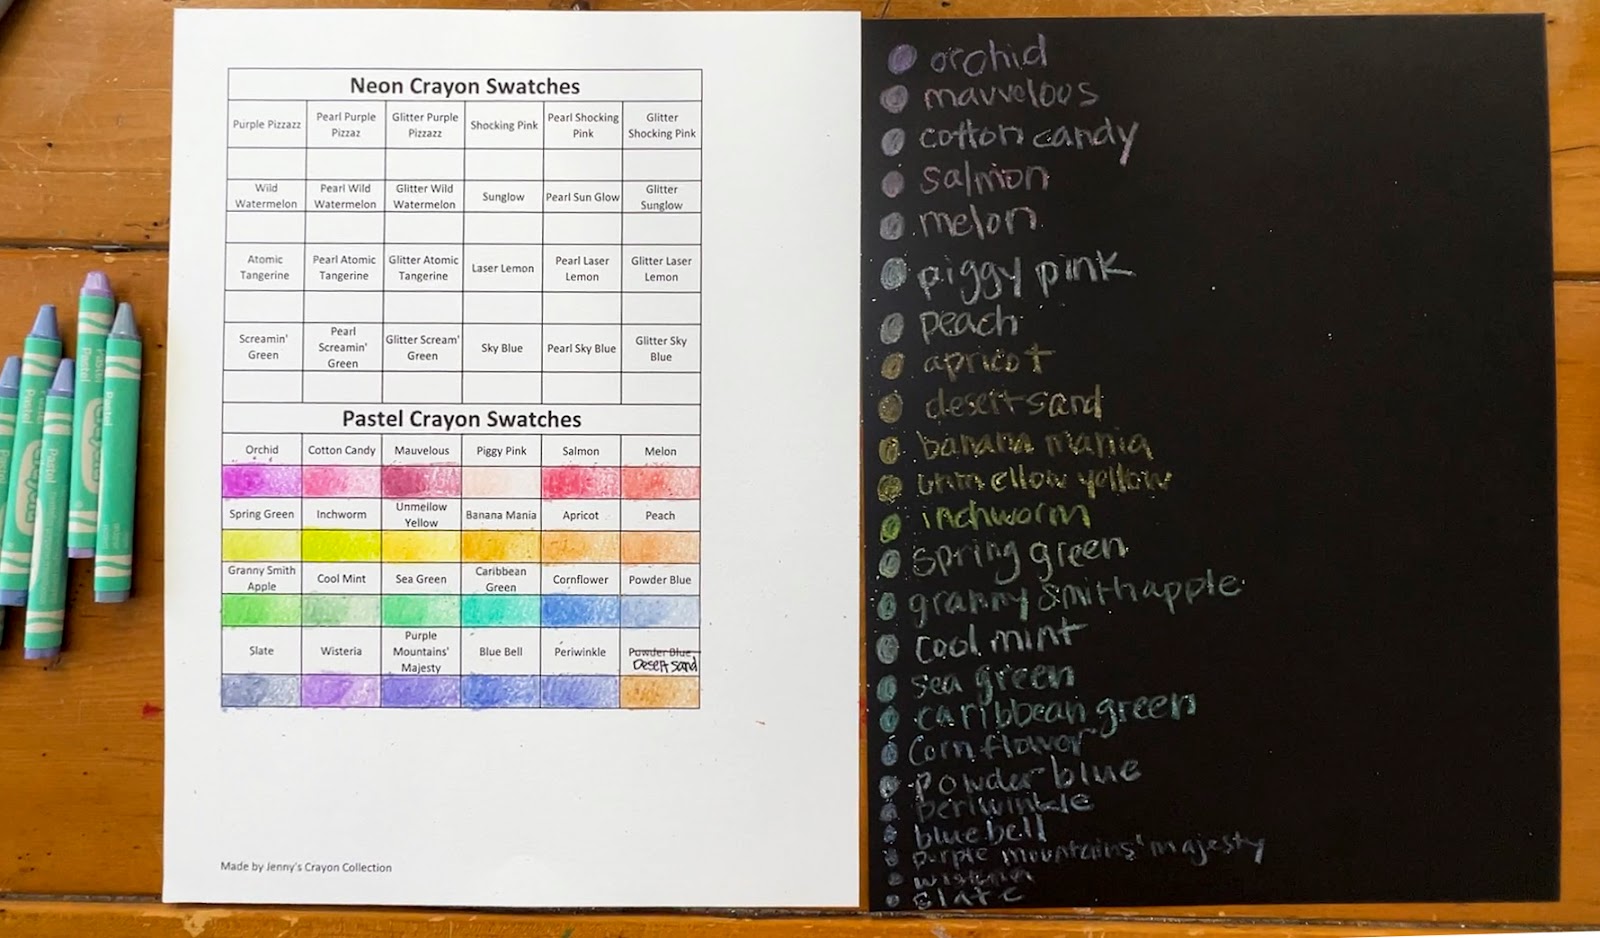 Neon Crayon Swatches
Purple Pizzazz
Pearl Purple
Pizzaz
Glitter Purple
Pizzazz
Shocking Pink
Pearl Shocking
Pink
Glitter
Shocking Pink
Wild
Watermelon
Pearl Wild
Watermelon
Glitter Wild
Watermelon
Sunglow
Pearl Sun Glow
Glitter
Sunglow
Atomic
Tangerine
Pearl Atomic
Tangerine
Glitter Atomic
Tangerine
Laser Lemon
Pearl Laser
Lemon
Glitter Laser
Lemon
Screamin'
Green
Pearl
Screamin'
Green
Glitter Scream'
Green
Sky Blue
Pearl Sky Blue
Glitter Sky
Blue
Pastel Crayon Swatches
Orchid
Cotton Candy
Mauvelous
Piggy Pink
Salmon
Melon
Spring Green
Inchworm
Unmellow
Yellow
Banana Mania
Apricot
Peach
Granny Smith
Apple
Cool Mint
Sea Green
Caribbean
Green
Cornflower
Powder Blue
Slate
Wisteria
Purple
Mountains'
Majesty
Blue Bell
Periwinkle
Powder Blue
Desert sand
Made by Jenny's Crayon Collection
orchid
mauvelous
cotton candy
salmon
melon
piggy pink
peach
apricot
desert sand
banana mania
unmellow yellow
inchworm
spring green
granny smith apple
cool mint
sea green
caribbean green
powder blue
periwinkle
blue bell
purple mountains' majesty
wisteria
slate
Pastel
Pastel
Pastel